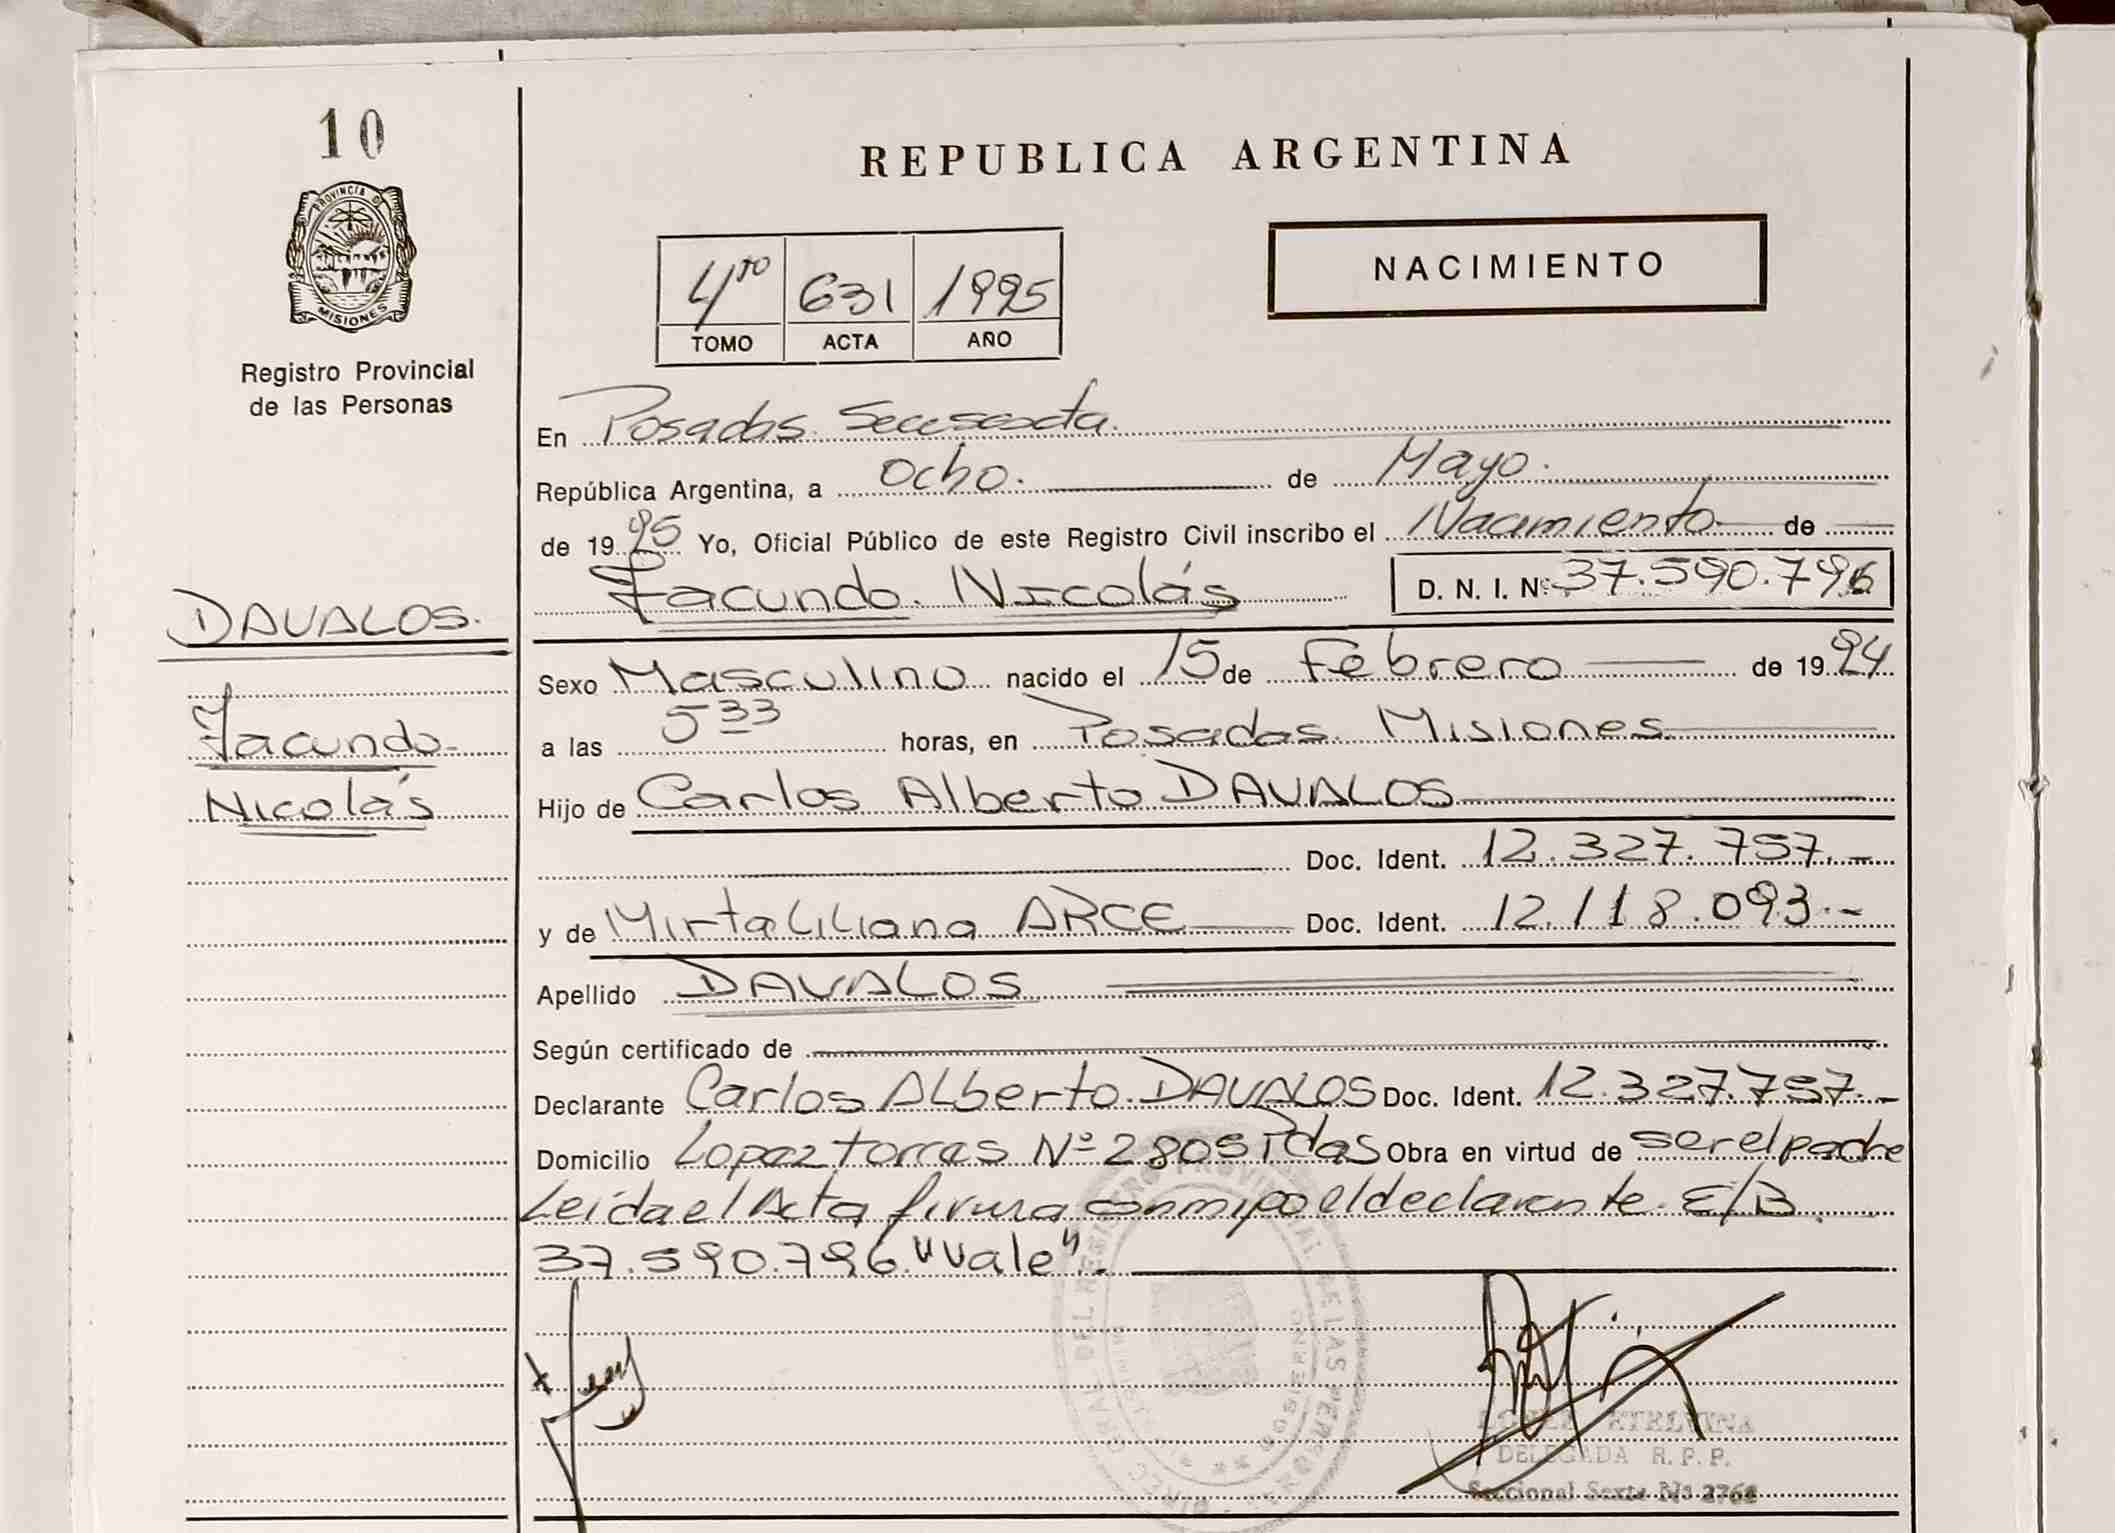 10
PROVINCIA DE
MISIONES
Registro Provincial
de las Personas
REPUBLICA ARGENTINA
4to 631 1995
TOMO ACTA AÑO
NACIMIENTO
En Posadas Secc sexta
República Argentina, a ocho. de Mayo.
de 19 95 Yo, Oficial Público de este Registro Civil inscribo el Nacimiento de
Facundo Nicolás D. N. I. Nº 37.590.796
DAVALOS.
Facundo
Nicolás
Sexo Masculino nacido el 15 de Febrero de 19 94
a las 5 33 horas, en Posadas Misiones
Hijo de Carlos Alberto DAVALOS
Doc. Ident. 12.327.757.-
y de Mirta Liliana ARCE Doc. Ident. 12.118.093.-
Apellido DAVALOS
Según certificado de
Declarante Carlos ALberto DAVALOS Doc. Ident. 12.327.757.-
Domicilio Lopez torres Nº 2805 Pdas Obra en virtud de ser el padre
Leida el Acta firma conmigo el declarante. E/B
37.590.796 "Vale".-
ETELVINA
DELEGADA R. P. P.
Seccional Sexta Nº 2762